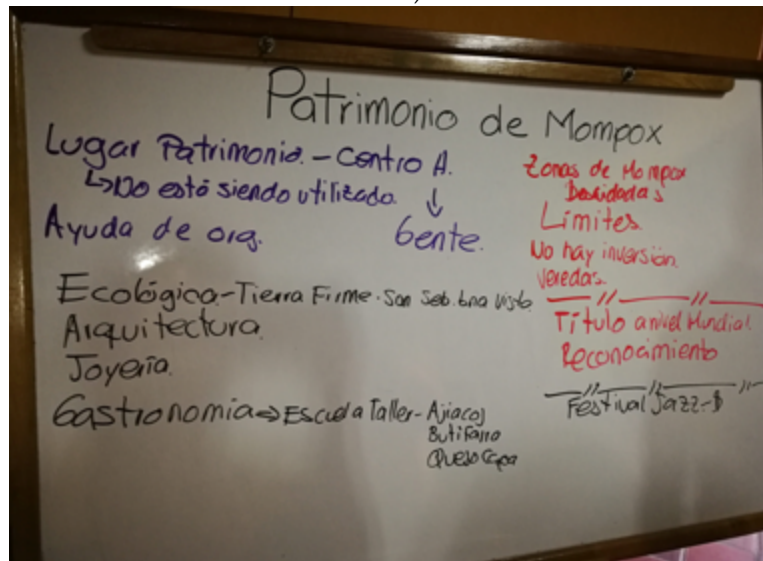 Patrimonio de Mompox
Lugar Patrimonio. - Centro A.
↳ No está siendo utilizado. ↓
Ayuda de org. Gente.
Ecológica - Tierra Firme. San Seb. bna vista
Arquitectura.
Joyería.
Gastronomia ⇒ Escuela Taller - Ajiacos
Butifarra
Queso Capa
Zonas de Mompox
Límites.
No hay inversión
veredas.
Título a nivel Mundial.
Reconocimiento
Festival Jazz - $